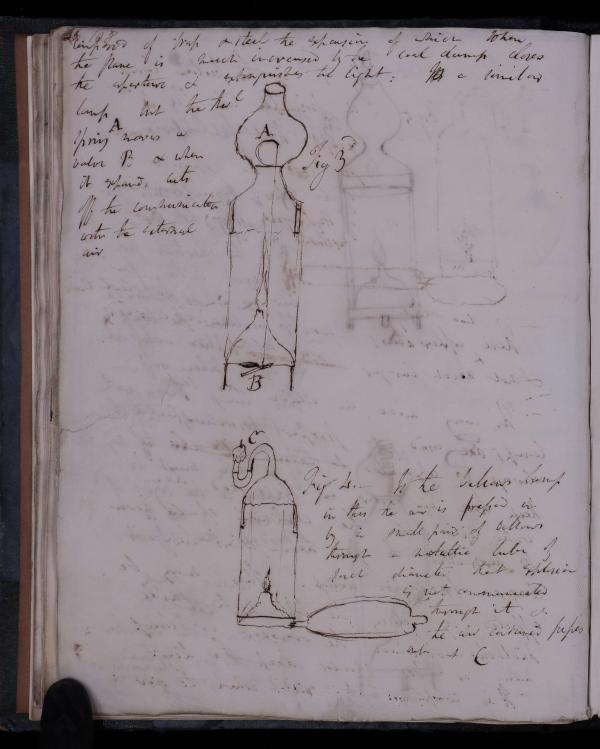 composed of brass & steel the expansion of which when
the flame is much increased by the coal damp closes
the aperture & extinguishes the light: a similar
lamp but the
spring A moves a
valve B & when
it expands, cuts
off the communication
with the external
air
A
Fig 3
B
C
Fig 4. Is the bellows lamp
in this the air is pressed in
by a small pair of bellows
through a metallic tube of
such diameter that explosion
is not communicated
through it &
the air consumed passes
out at C